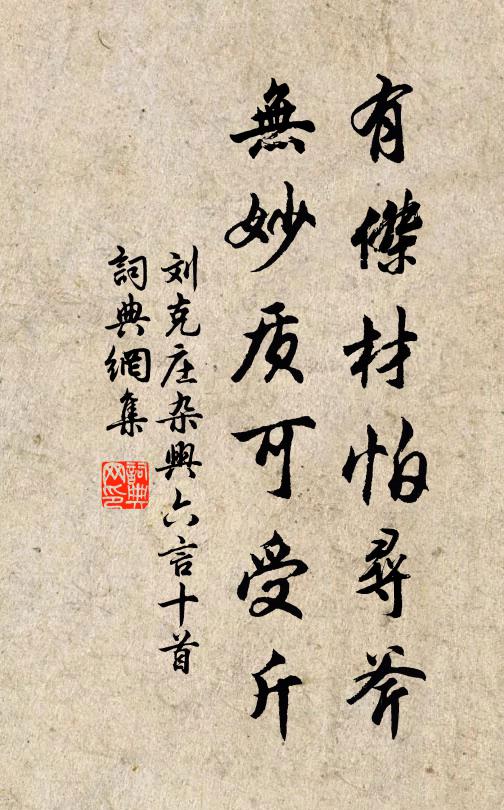 有傑材怕尋斧
無妙质可受斤
刘克庄杂興六言十首
詞典網集
詞典网印